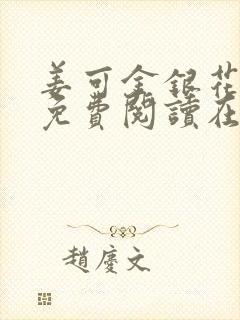 姜可金銀花
免費閱讀在
趙慶文